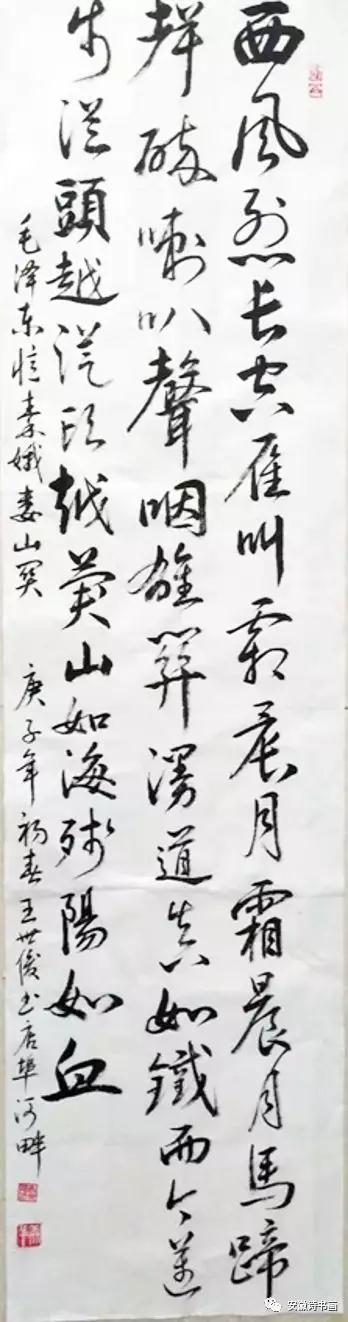 西风烈长空雁叫霜晨月霜晨月馬蹄
声碎喇叭聲咽雄關漫道真如鐵而今邁
步從頭越從头越蒼山如海残陽如血
毛泽东忆秦娥娄山关 庚子年初春王世俊书店埠河畔
安徽诗书画